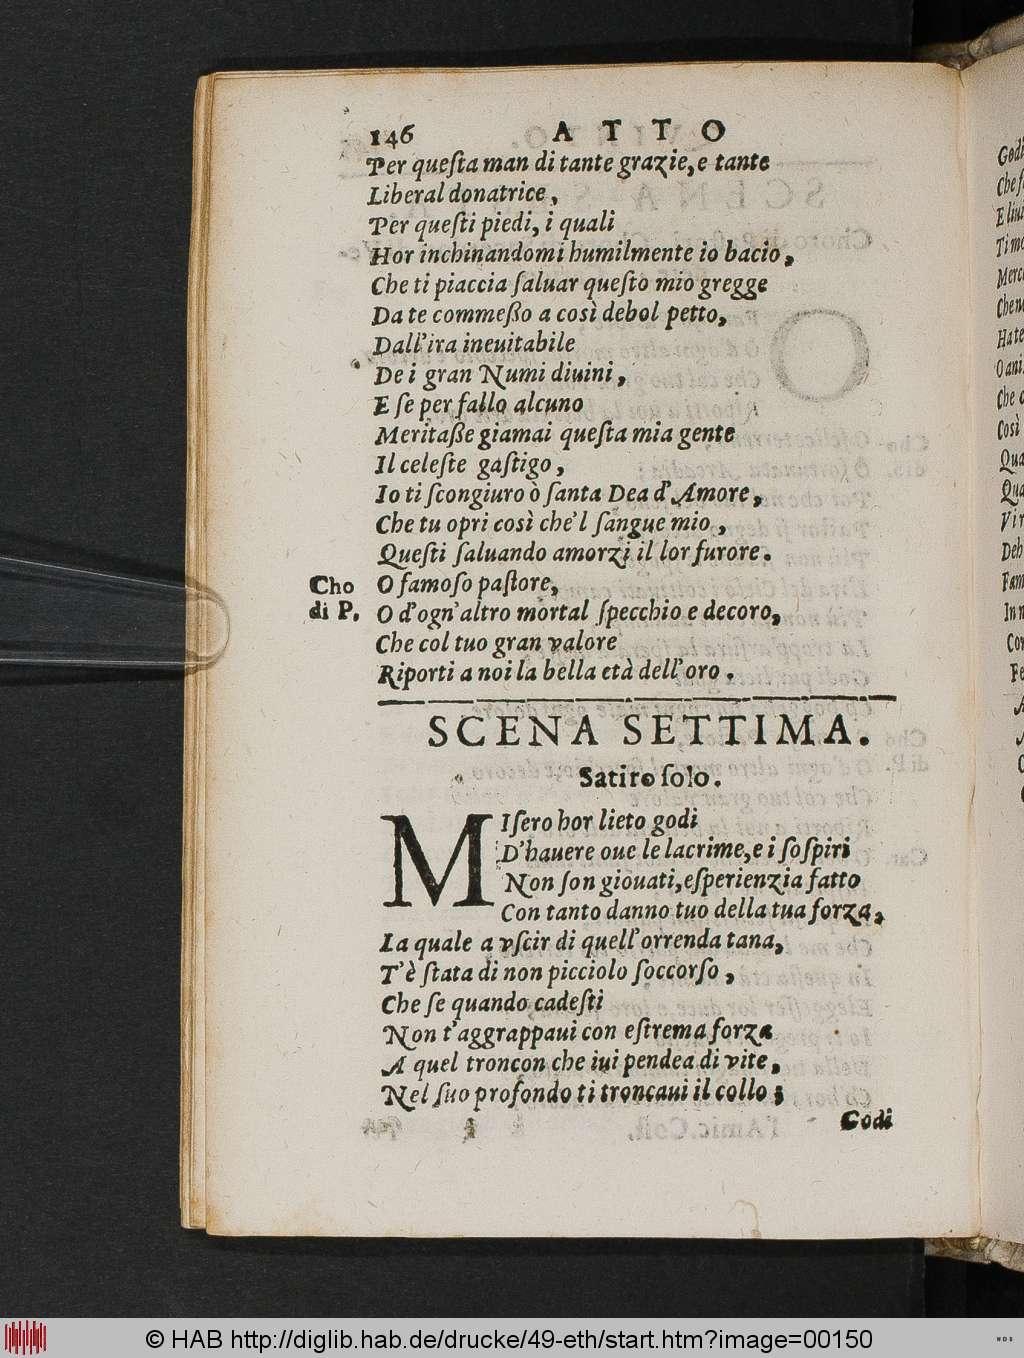 146 ATTO
Per queſta man di tante grazie, e tante
Liberal donatrice,
Per queſti piedi, i quali
Hor inchinandomi humilmente io bacio,
Che ti piaccia ſaluar queſto mio gregge
Da te commeßo a così debol petto,
Dall'ira ineuitabile
De i gran Numi diuini,
E ſe per fallo alcuno
Meritaße giamai queſta mia gente
Il celeſte gaſtigo,
Io ti ſcongiuro ò ſanta Dea d'Amore,
Che tu opri così che'l ſangue mio,
Queſti ſaluando amorzi il lor furore.
Cho di P. O famoſo paſtore,
O d'ogn'altro mortal ſpecchio e decoro,
Che col tuo gran valore
Riporti a noi la bella età dell'oro.
SCENA SETTIMA.
Satiro ſolo.
MIſero hor lieto godi
D'hauere oue le lacrime, e i ſoſpiri
Non ſon giouati, eſperienzia fatto
Con tanto danno tuo della tua forza,
La quale a vſcir di quell'orrenda tana,
T'è ſtata di non picciolo ſoccorſo,
Che ſe quando cadeſti
Non t'aggrappaui con eſtrema forza
A quel troncon che iui pendea di vite,
Nel ſuo profondo ti troncaui il collo;
Godi
© HAB http://diglib.hab.de/drucke/49-eth/start.htm?image=00150